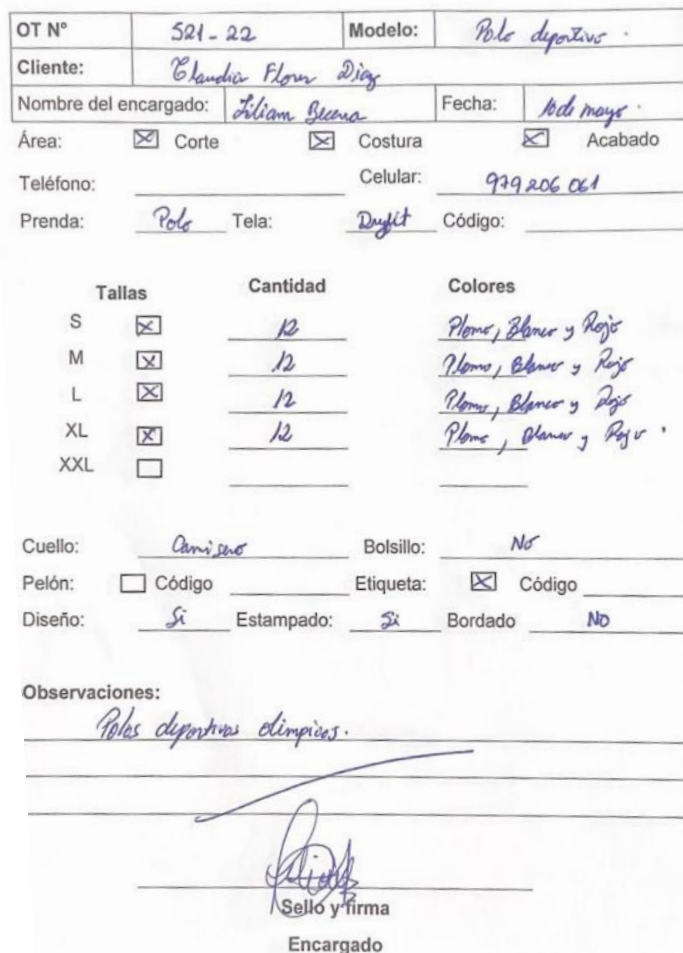 OT Nº 521-22 Modelo: Polo deportivo.
Cliente: Claudia Flores Diaz
Nombre del encargado: Liliam Becerra Fecha: 10 de mayo.
Área: Corte Costura Acabado
Teléfono: Celular: 979206061
Prenda: Polo Tela: Dryfit Código:
Tallas Cantidad Colores
S 12 Plomo, Blanco y Rojo
M 12 Plomo, Blanco y Rojo
L 12 Plomo, Blanco y Rojo
XL 12 Plomo, Blanco y Rojo.
XXL
Cuello: Camisero Bolsillo: No
Pelón: Código Etiqueta: Código
Diseño: Si Estampado: Si Bordado NO
Observaciones:
Polos deportivos olimpicos.
Sello y firma
Encargado